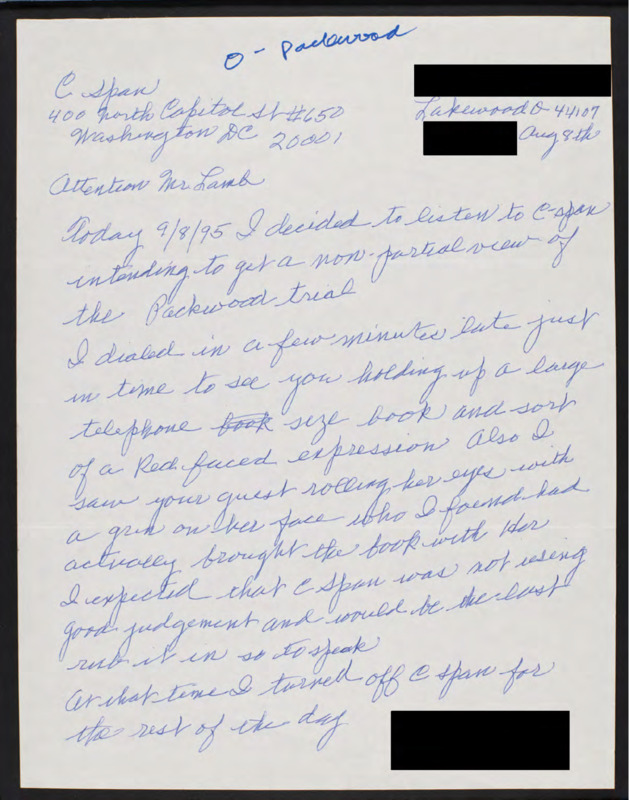 O - Packwood
C Span
400 North Capitol St #650
Washington DC 20001
Lakewood O 44107
Aug 8th
Attention Mr. Lamb
Today 9/8/95 I decided to listen to C-span
intending to get a non-partial view of
the Packwood trial
I dialed in a few minutes late just
in time to see you holding up a large
telephone book size book and sort
of a Red-faced expression Also I
saw your guest rolling her eyes with
a grin on her face who I found had
actually brought the book with Her
I expected that C Span was not using
good judgement and would be the last
rub it in so to speak
At that time I turned off C Span for
the rest of the day